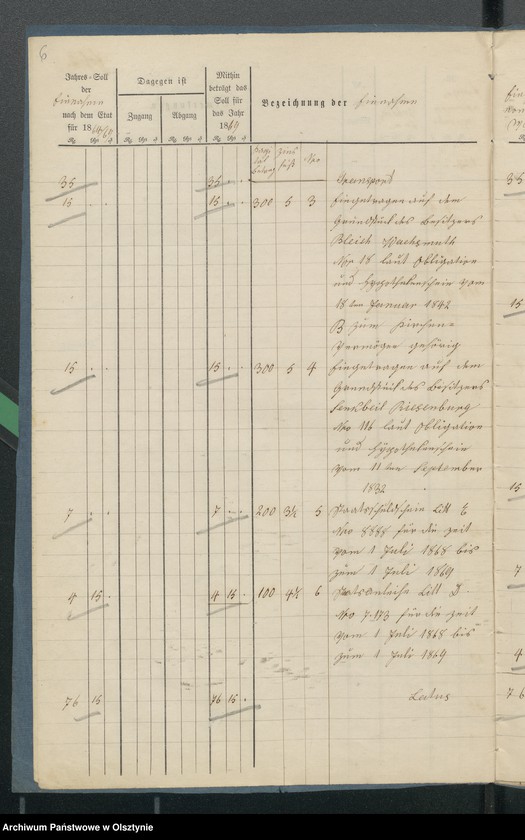 6
Jahres-Soll der Einnahme nach dem Etat für 18
Dagegen ist
Zugang
Abgang
Mithin beträgt das Soll für das Jahr 1869
Bezeichnung der Einnahme
No
35 35 Transport
15 15 300 5 3 Eingetragen auf dem
Grundstück des Besitzers
No 18 laut Obligation
und Hypothekenschein vom
18 ten Januar 1842
B zum Kirchen
Vermögen gehörig
15 15 300 5 4 Eingetragen auf dem
Grundstück des Besitzers
Riesenburg
No 116 laut Obligation
und Hypothekenschein
vom 11 ten September
1832
7 7 200 3½ 5 Staatsschuldschein Litt E
No 8888 für die Zeit
vom 1 Juli 1868 bis
zum 1 Juli 1869
4 15 4 15 100 4½ 6 Staatsanleihe Litt D
No 7173 für die Zeit
vom 1 Juli 1868 bis
zum 1 Juli 1869
76 15 76 15 Latus
Archiwum Państwowe w Olsztynie